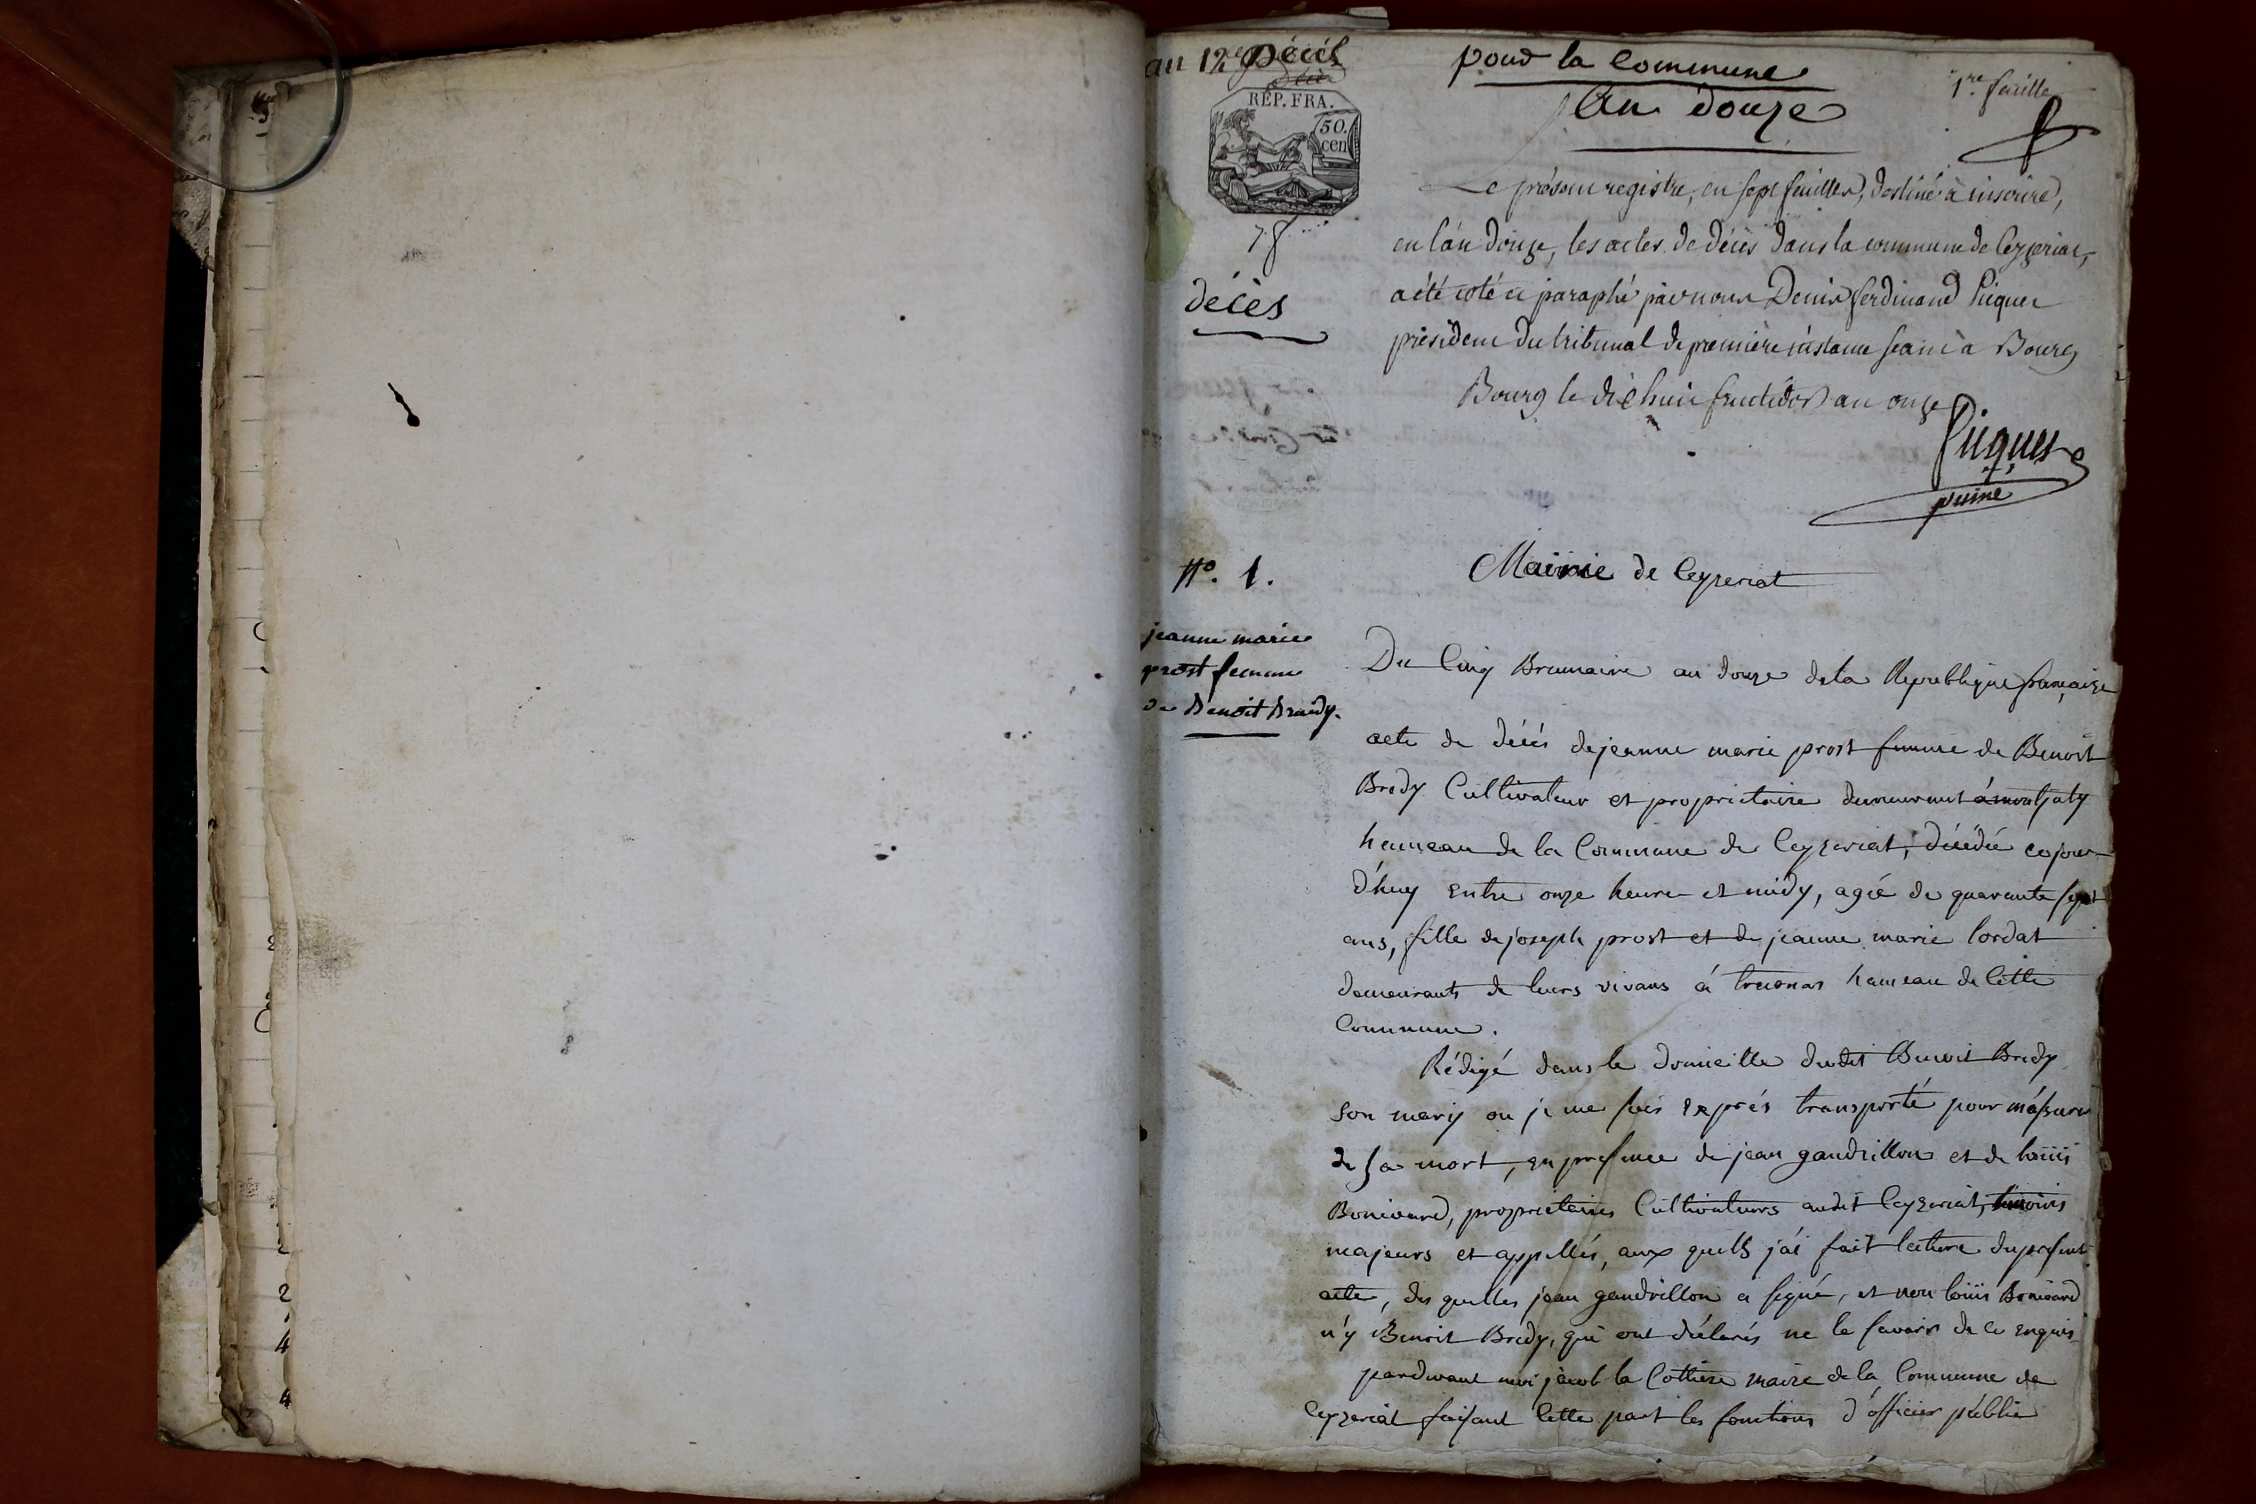 an 12e Décès
pour la Commune
1re feuille
An douze
REP. FRA.
50.
cen
75
décès
Le présent registre, en sept feuillets, destiné à inscrire,
en l'an douze, les actes de décès dans la commune de Ceyzeriat,
a été coté et paraphé par nous Denis ferdinand Picquet
président du tribunal de première instance séant à Bourg
Bourg le dixhuit fructidor an onze
Picquet
puiné
N°. 1.
Mairie de Ceyzeriat
jeanne marie
prost femme
de Benoit Bredy.
Du Cinq Brumaire an douze de la Republique française
acte de décés de jeanne marie prost femme de Benoit
Bredy Cultivateur et proprietaire demeurant á montjuly
hameau de la Commune de Ceyzeriat, décédée cejour-
d'huy entre onze heure et midy, agée de quarante sept
ans, fille de joseph prost et de jeanne marie Cordat
demeurants de leurs vivans á treconas hameau de Cette
Commune.
Rédigé dans le domicille dudit Benoit Bredy
son mary ou je me suis exprés transporté pour m'assurer
de sa mort, en presence de jean gandrillon et de loüis
Bonivard, proprietaires Cultivateurs audit Ceyzeriat, temoins
majeurs et appellés, aux quells j'ai fait lecture du present
acte, des quelles jean gandrillon a signé, et non loüis Bonivard
n'y Benoit Bredy, qui ont déclarés ne le savoir de ce enquis
pardevant moi jacob la Cottiere maire de la Commune de
Ceyzeriat faisant Cette part les fonctions d'officier public
2
4
4